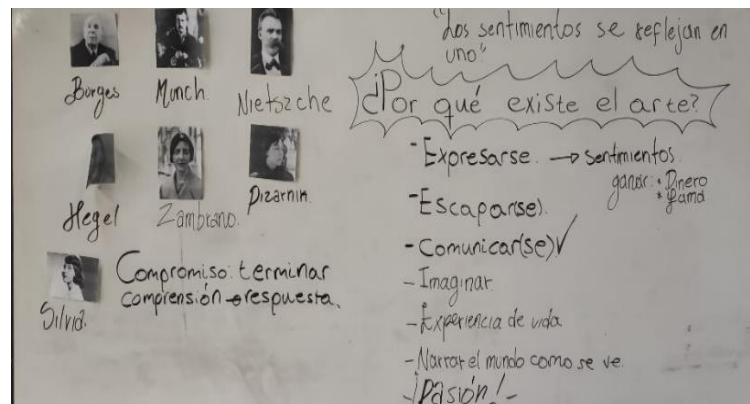 Borges
Munch.
Nietszche
Hegel
Zambrano.
Pizarnik.
Silvia.
Compromiso: terminar
comprensión → respuesta.
"Los sentimientos se reflejan en
uno"
¿Por qué existe el arte?
- Expresarse. → sentimientos.
ganar: • Dinero
* Fama
- Escapar(se).
- Comunicar(se) ✓
- Imaginar.
- Experiencia de vida
- Narrar el mundo como se ve.
- ¡Pasión! -